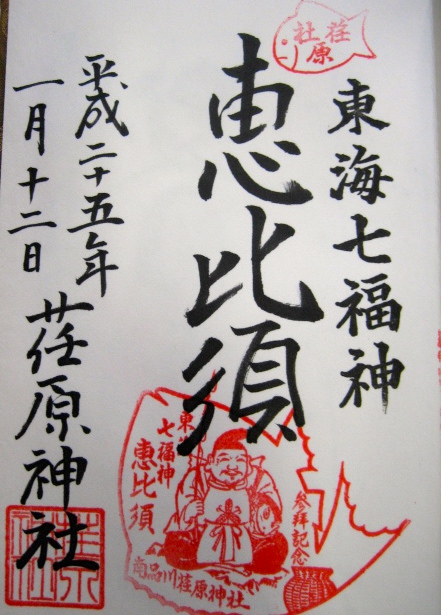 東海七福神
恵比須
平成二十五年
一月十二日
荏原神社
荏原
社
七福神
恵比須
参拝記念
南品川荏原神社